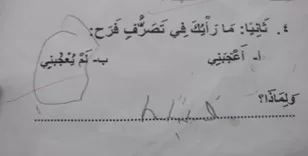 ٤. ثَانِيًا: مَا رَأْيُكَ فِي تَصَرُّفِ فَرَح:
أ- أَعْجَبَنِي ب- لَمْ يُعْجِبْنِي
وَلِمَاذَا؟